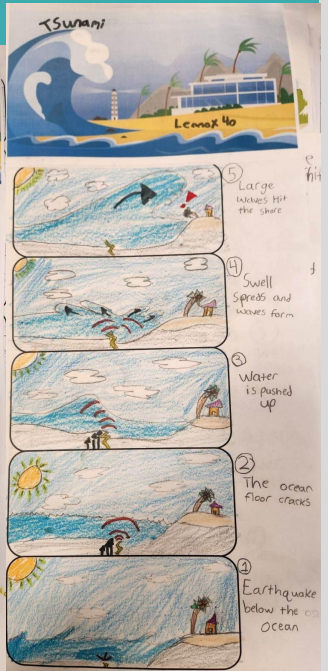 Tsunami
Lennox 40
⑤
Large
waves Hit
the shore
④
Swell
Spreds and
waves form
③
Water
is pushed
up
②
The ocean
floor cracks
①
Earthquake
below the
Ocean